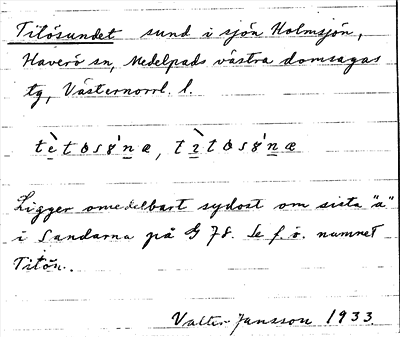 Titösundet sund i sjön Holmsjön,
Haverö sn, Medelpads västra domsagas
tg, Västernorrl. l.
Ligger omedelbart sydost om sista "a"
i Sandarna på G 78. Se f. ö. namnet
Titön.
Valter Jansson 1933.